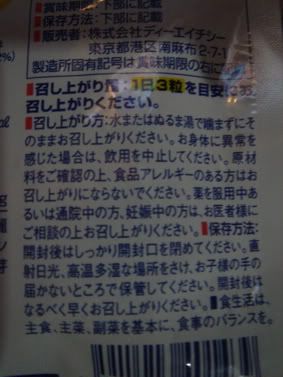 ■賞味期限:下部に記載
■保存方法:下部に記載
■販売者:株式会社ディーエイチシー
東京都港区南麻布2-7-1
製造所固有記号は賞味期限の右に記
■召し上がり量:1日3粒を目安に
召し上がりください。
■召し上がり方:水またはぬるま湯で噛まずにそ
のままお召し上がりください。お身体に異常を
感じた場合は、飲用を中止してください。原材
料をご確認の上、食品アレルギーのある方はお
召し上がりにならないでください。薬を服用中あ
るいは通院中の方、妊娠中の方は、お医者様に
ご相談の上お召し上がりください。■保存方法:
開封後はしっかり開封口を閉めてください。直
射日光、高温多湿な場所をさけ、お子様の手の
届かないところで保管してください。開封後は
なるべく早くお召し上がりください。■食生活は、
主食、主菜、副菜を基本に、食事のバランスを。